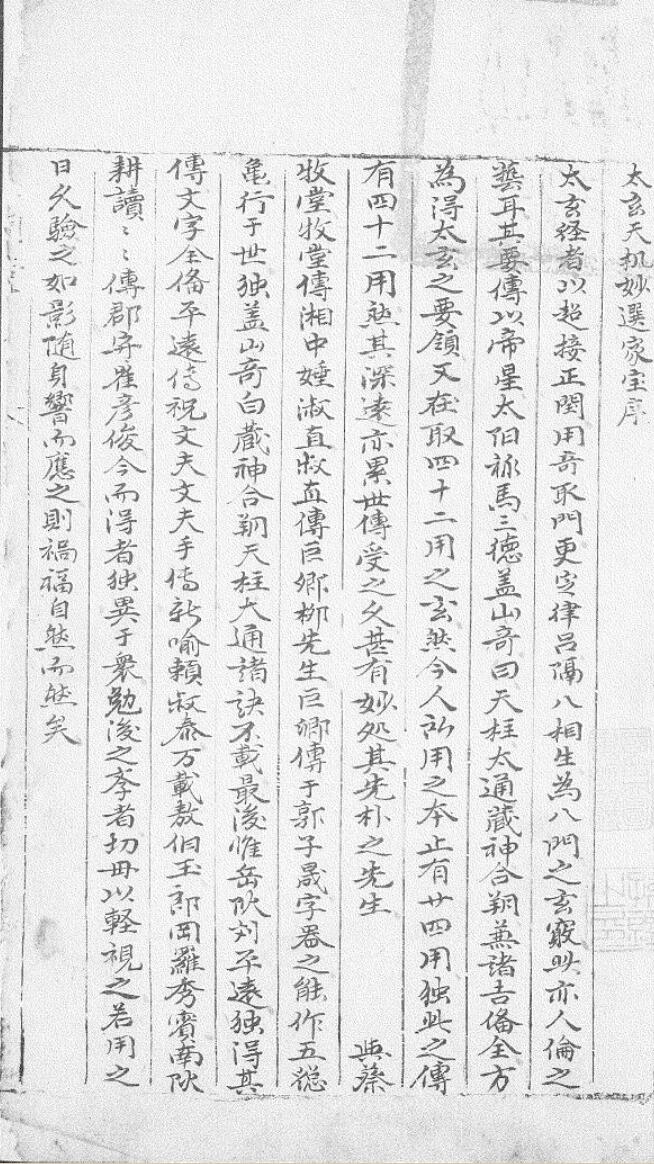 太玄天机妙選家宝序
太玄経者以超接正閏用奇取門更定律呂隔八相生為八門之玄竅此亦人倫之
藝耳其要傳以帝星太阳祿馬三德盖山奇曰天柱太通藏神合朔蕪諸吉俻全方
為得太玄之要領又在取四十二用之玄然今人所用之本止有廿四用独此之傳
有四十二用然其深遠亦累世傳受之久甚有妙処其先朴之先生 與蔡
牧堂牧堂傳湘中㛗淑直淑直傳巨卿栁先生巨卿傳于郭子晟字器之能作五
亀行于世独盖山奇白藏神合朔天柱大通諸訣不載最後惟岳阦刘平遠独得其
傳文字全俻平遠傳祝文夫文夫手傳新喻頼叔泰万載敖伯玉郎岡羅秀賓南阦
耕讀〻〻傳郡庠崔彦俊今而得者独異于衆勉後之孝者切毋以軽視之若用之
日久驗之如影随身響而應之則禍福自然而然矣